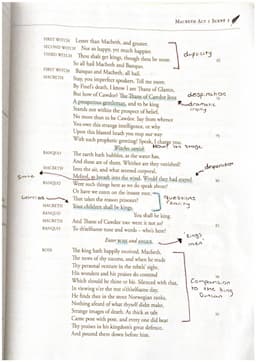 MACBETH ACT 1 SCENE 3
FIRST WITCH Lesser than Macbeth, and greater.
SECOND WITCH Not so happy, yet much happier.
THIRD WITCH Thou shalt get kings, though thou be none:
So all hail Macbeth and Banquo.
FIRST WITCH Banquo and Macbeth, all hail.
MACBETH Stay, you imperfect speakers. Tell me more:
By Finel's death, I know I am Thane of Glamis,
But how of Cawdor? The Thane of Cawdor lives
A prosperous gentleman, and to be king
Stands not within the prospect of belief,
No more than to be Cawdor. Say from whence
You owe this strange intelligence, or why
Upon this blasted heath you stop our way
With such prophetic greeting? Speak, I charge you.
Witches vanish
BANQUO The earth hath bubbles, as the water has,
And these are of them. Whither are they vanished?
MACBETH Into the air, and what seemed corporal,
Melted, as breath into the wind. Would they had stayed.
BANQUO Were such things here as we do speak about?
Or have we eaten on the insane root,
That takes the reason prisoner?
MACBETH Your children shall be kings.
BANQUO You shall be king.
MACBETH And Thane of Cawdor too: went it not so?
BANQUO To th'selfsame tune and words – who's here?
Enter ROSS and ANGUS
ROSS The king hath happily received, Macbeth,
The news of thy success, and when he reads
Thy personal venture in the rebels' sight,
His wonders and his praises do contend
Which should be thine or his. Silenced with that,
In viewing o'er the rest o'th'selfsame day,
He finds thee in the stout Norwegian ranks,
Nothing afeard of what thyself didst make,
Strange images of death. As thick as tale
Came post with post, and every one did bear
Thy praises in his kingdom's great defence,
And poured them down before him.
desperation
dramatic
irony
desperation
Questions
king's
men
Comparison
to the king
Duncan